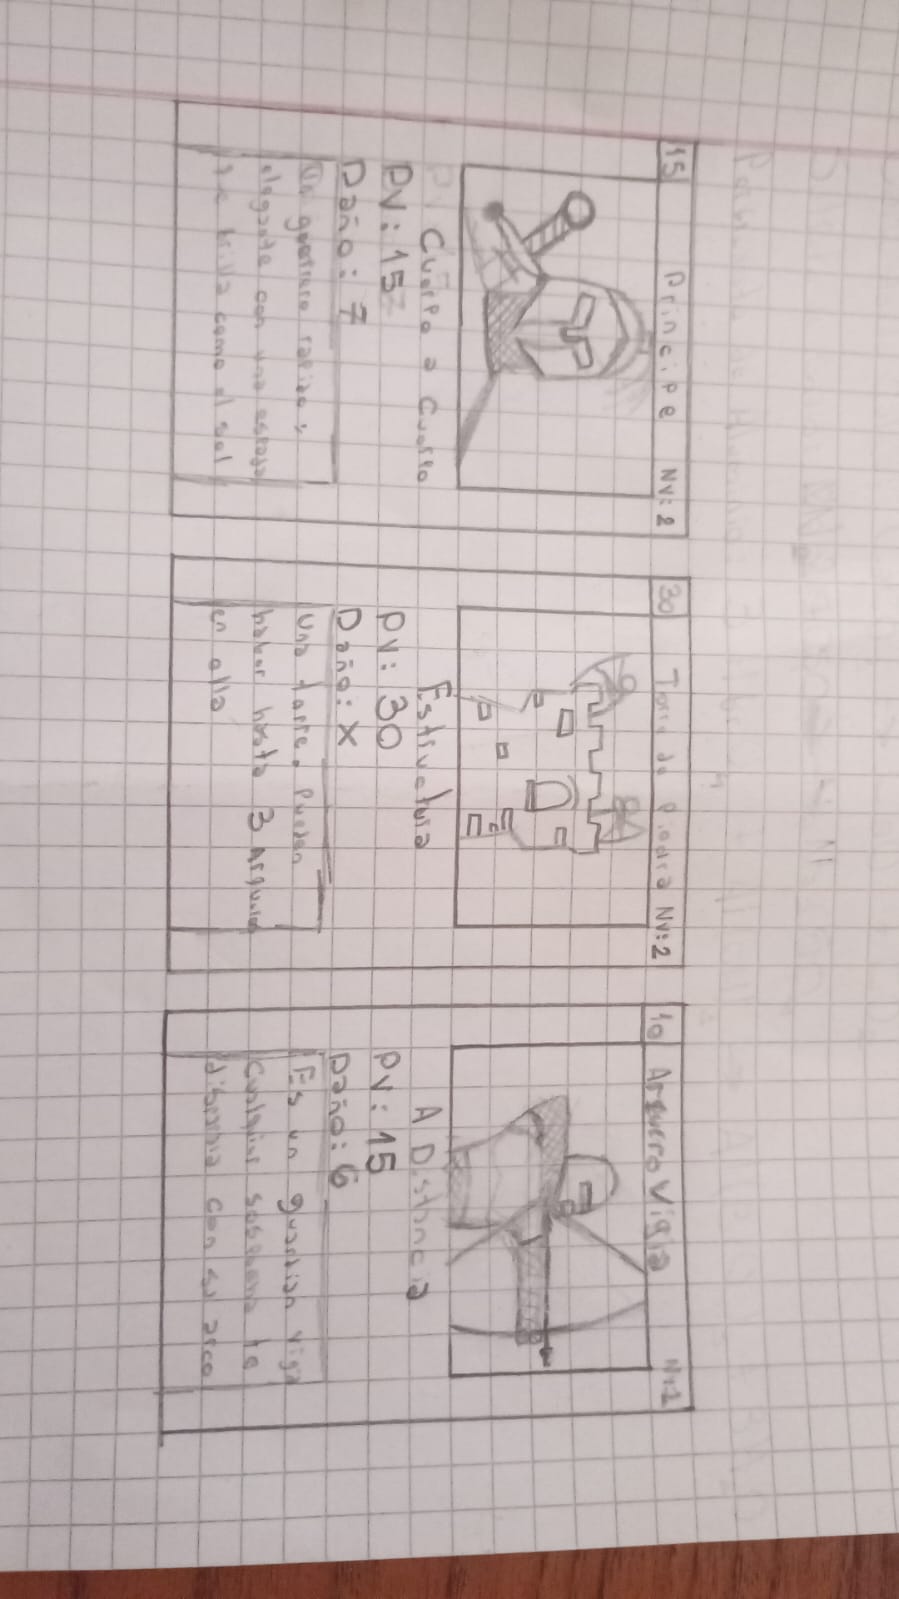 15 Principe Nv:2
Cuerpo a Cuerpo
PV: 15
Daño: 7
Un guerrero rapido y
elegante con una espada
que brilla como el sol
30 Torre de Piedra Nv:2
Estructura
PV: 30
Daño: X
Una torre. Pueden
haber hasta 3 Arqueros
en ella
10 Arquero Vigia
A Distancia
PV: 15
Daño: 6
Es un guardian vigia
Cualquier sospecha te
disparia con su arco